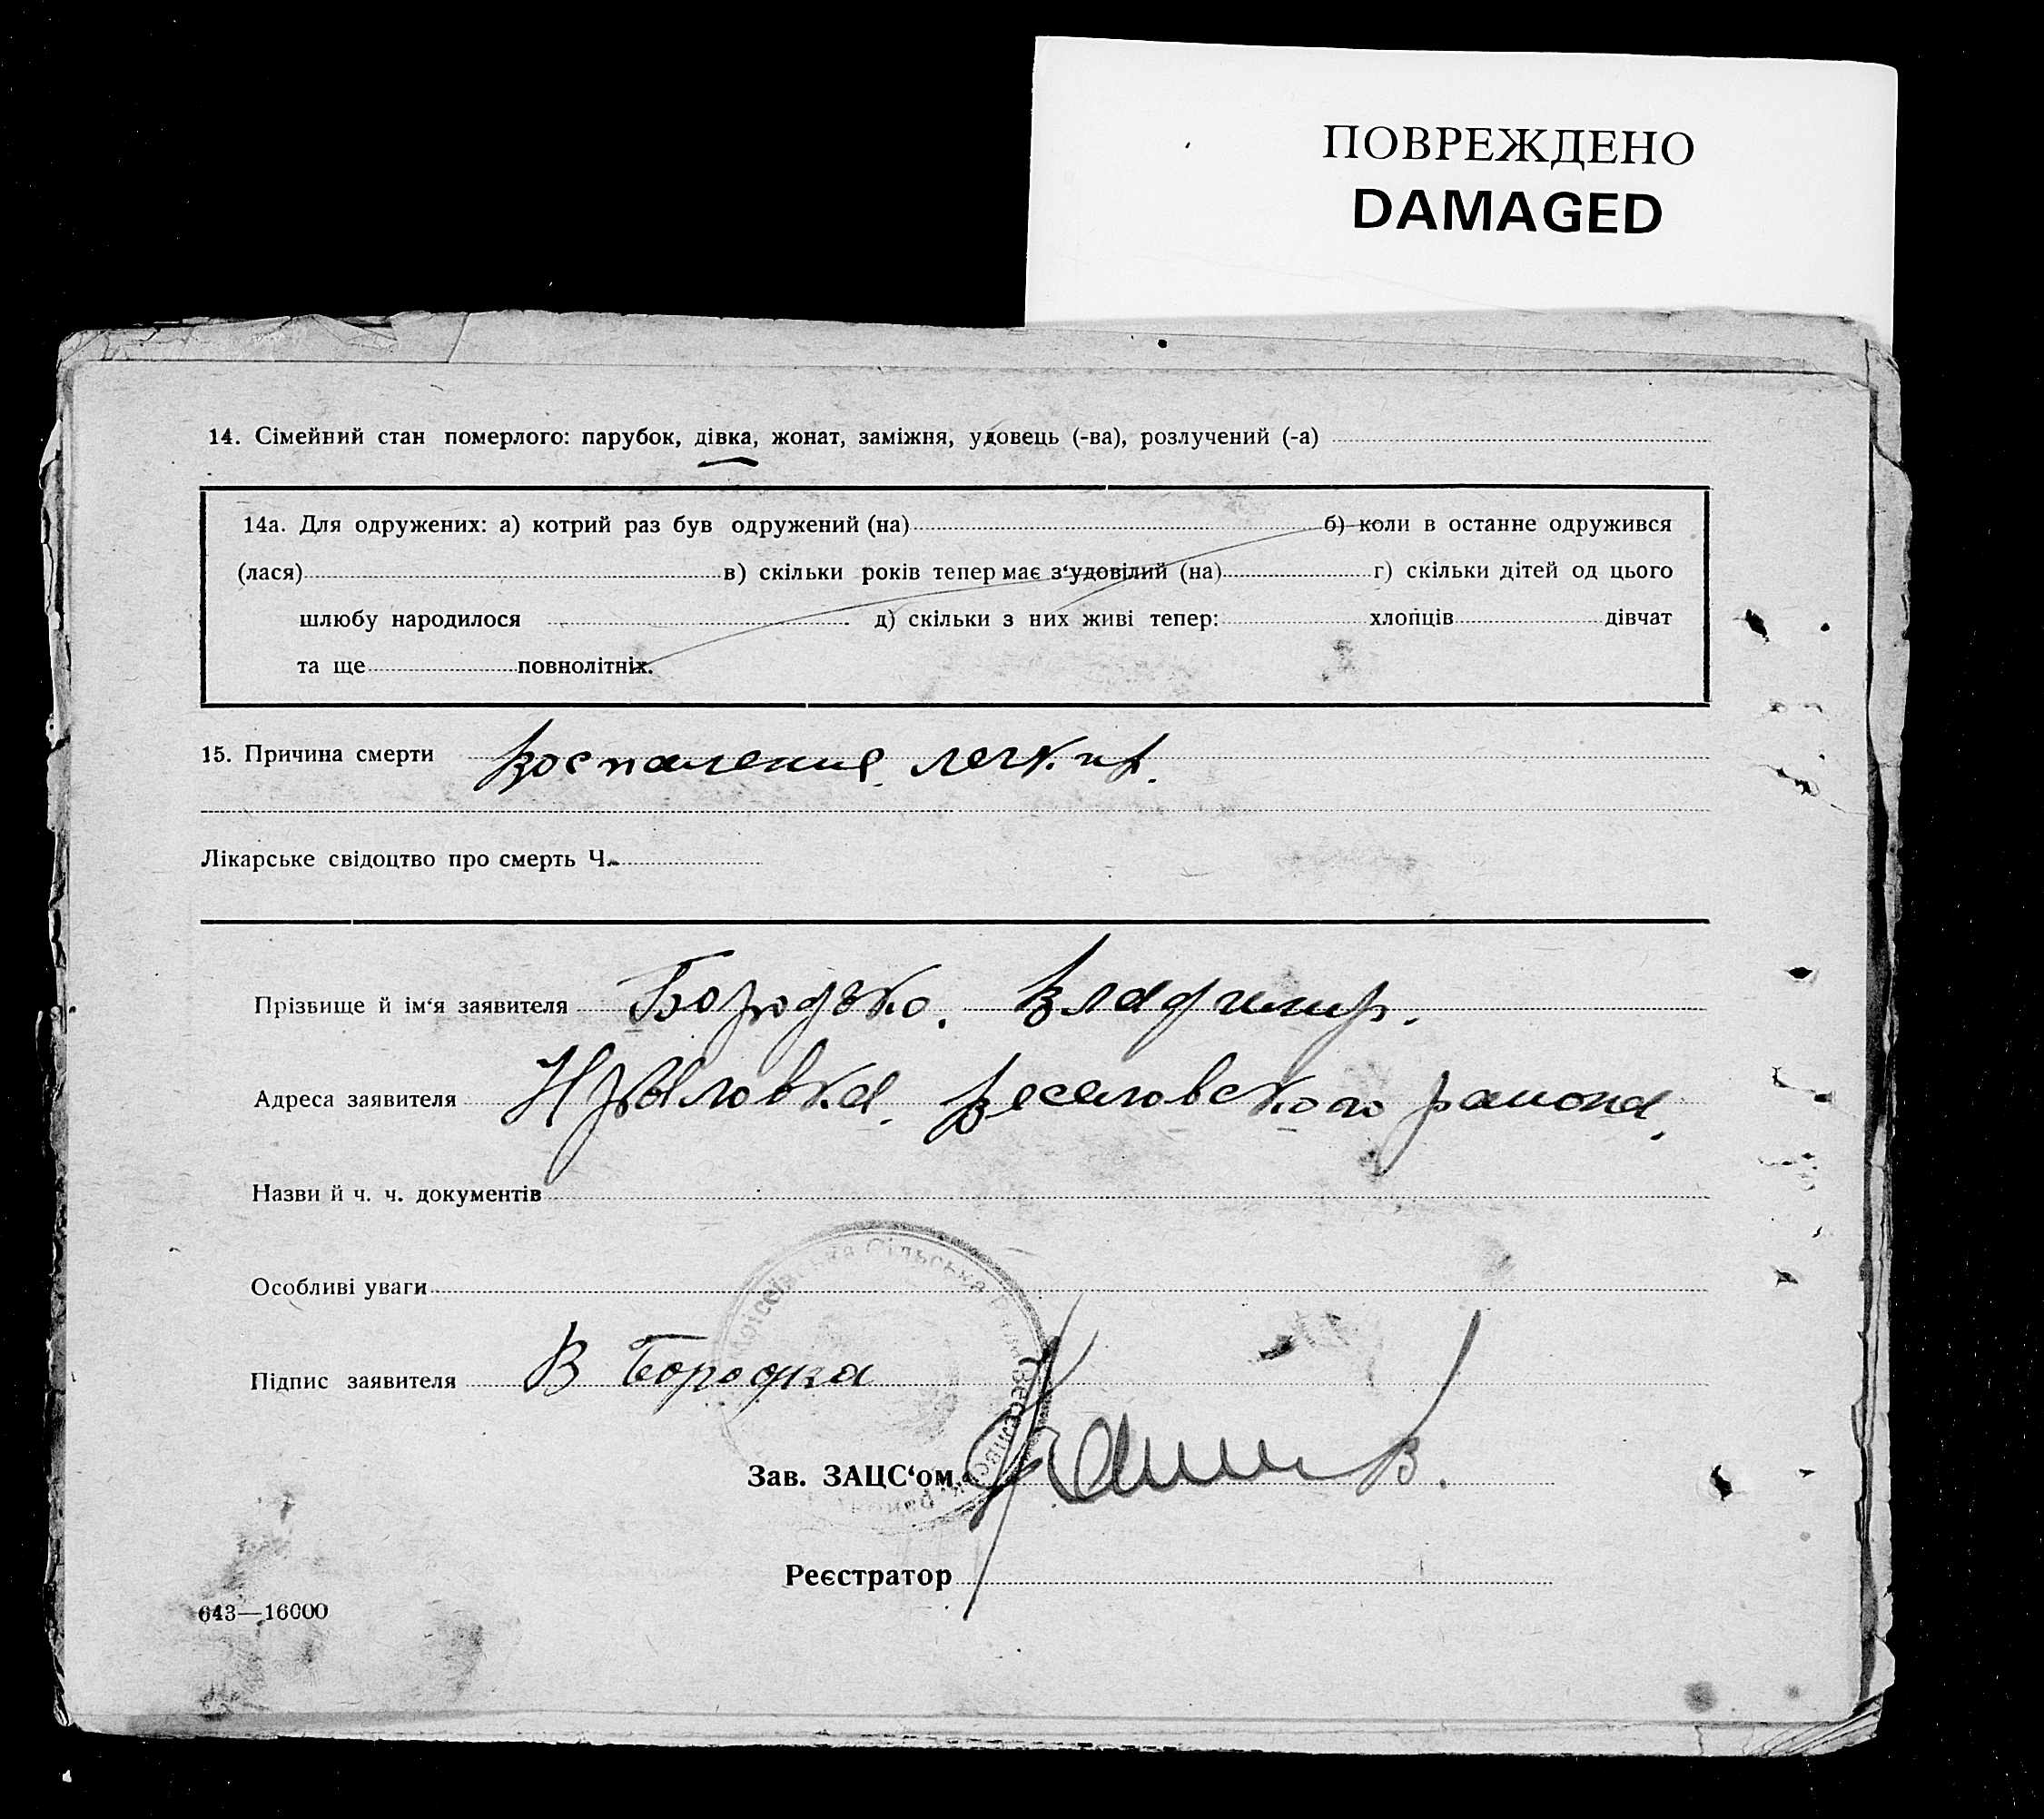 ПОВРЕЖДЕНО
DAMAGED
14. Сімейний стан померлого: парубок, дівка, жонат, заміжня, удовець (-ва), розлучений (-а)
14а. Для одружених: а) котрий раз був одружений (на) б) коли в останне одружився
(лася) в) скільки років тепер має з‘удовілий (на) г) скільки дітей од цього
шлюбу народилося д) скільки з них живі тепер: хлопців дівчат
та ще повнолітніх.
15. Причина смерти воспаление легких.
Лікарське свідоцтво про смерть Ч.
Прізвище й ім‘я заявителя Бородько. Владимир.
Адреса заявителя веселовского района.
Назви й ч. ч. документів
Особливі уваги
Сільська Рада Веселівськ.
Підпис заявителя В Бородка
Зав. ЗАЦС‘ом
Реєстратор
643—16000